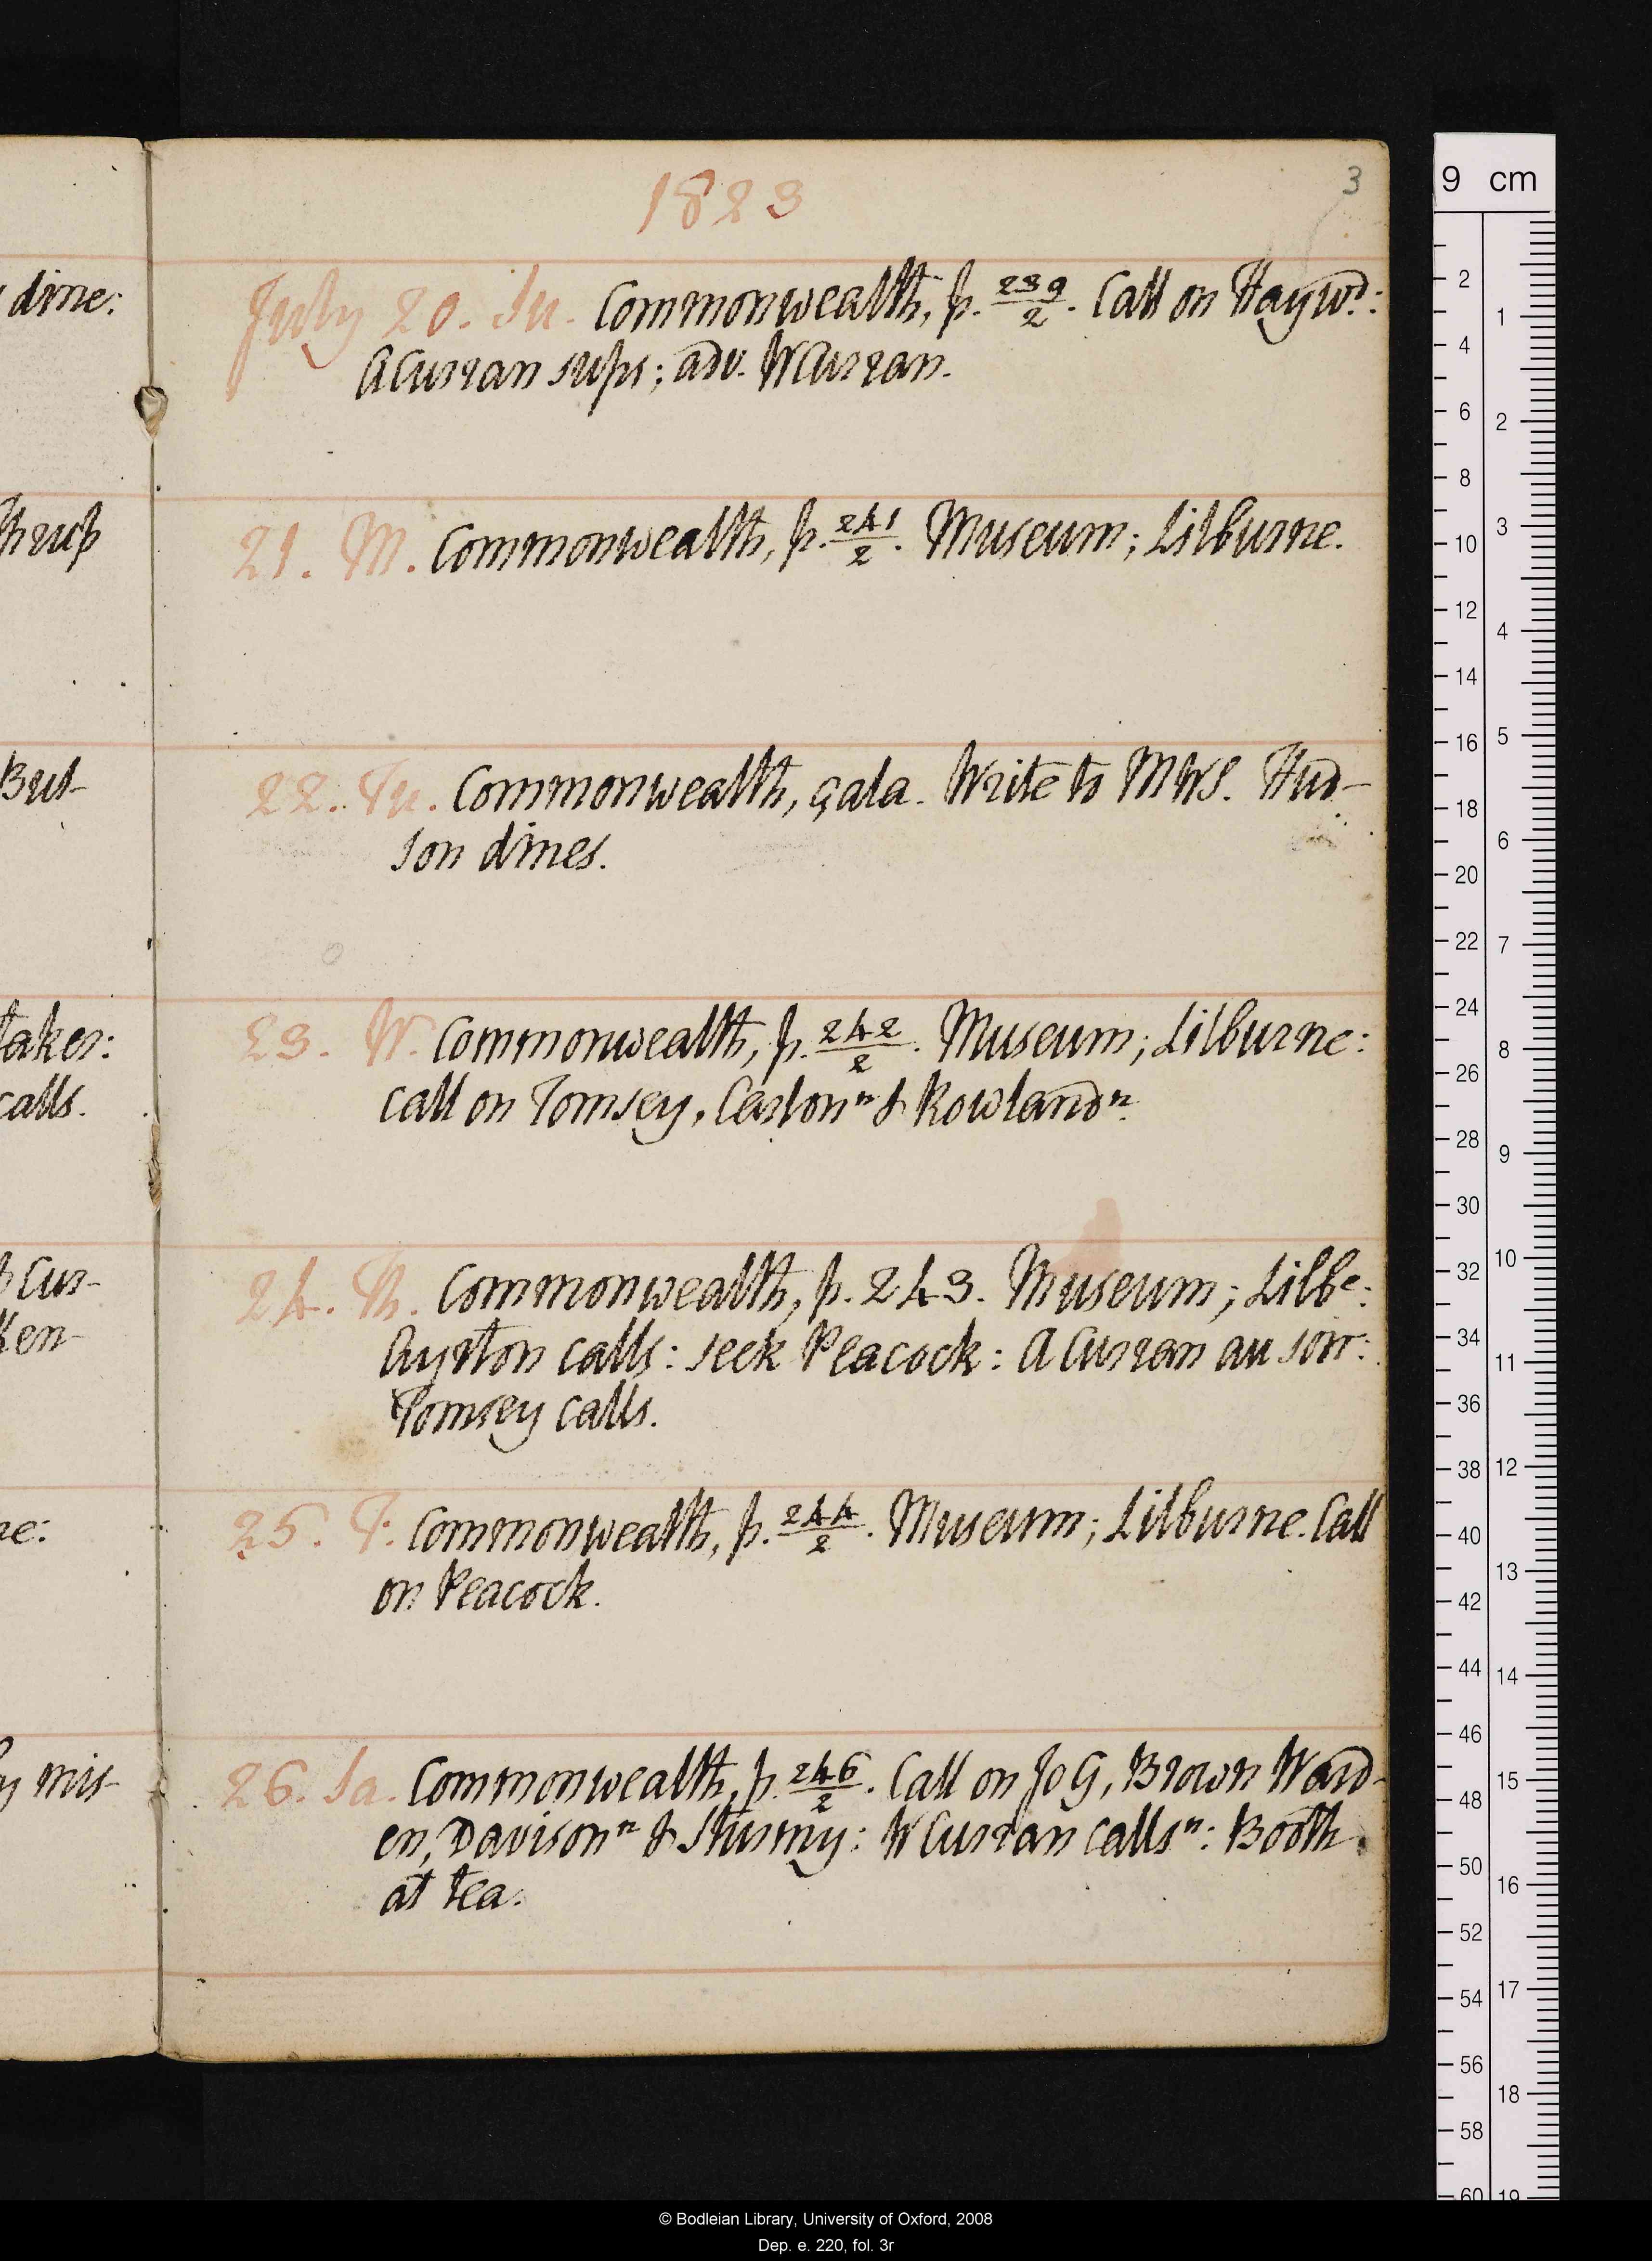 1823
3
dine:
July 20. Su. Commonwealth, p. 239/2. Call on Haywd:
ACurran sups; adv. WCurran.
thrup
21. M. Commonwealth, p. 241/2. Museum; Lilburne.
But-
22. Tu. Commonwealth, çala. Write to MWS. Hud-
son dines.
takes:
calls.
23. W. Commonwealth, p. 242/2. Museum; Lilburne:
call on Tomsey, Carlonⁿ & Rowlandⁿ.
Cur-
Ken-
24. Th. Commonwealth, p. 243. Museum; Lilbe:
Ayrton calls: seek Peacock: ACurran au soir:
Tomsey calls.
ne:
25. F. Commonwealth, p. 244/2. Museum; Lilburne. Call
on Peacock.
mis-
26. Sa. Commonwealth, p. 246/2. Call on JoG, Brown Ward-
en, Davisonⁿ & Sturmy: WCurran callsⁿ: Booth
at tea.
9 cm
2
4
6
8
10
12
14
16
18
20
22
24
26
28
30
32
34
36
38
40
42
44
46
48
50
52
54
56
58
60
1
2
3
4
5
6
7
8
9
10
11
12
13
14
15
16
17
18
19
© Bodleian Library, University of Oxford, 2008
Dep. e. 220, fol. 3r